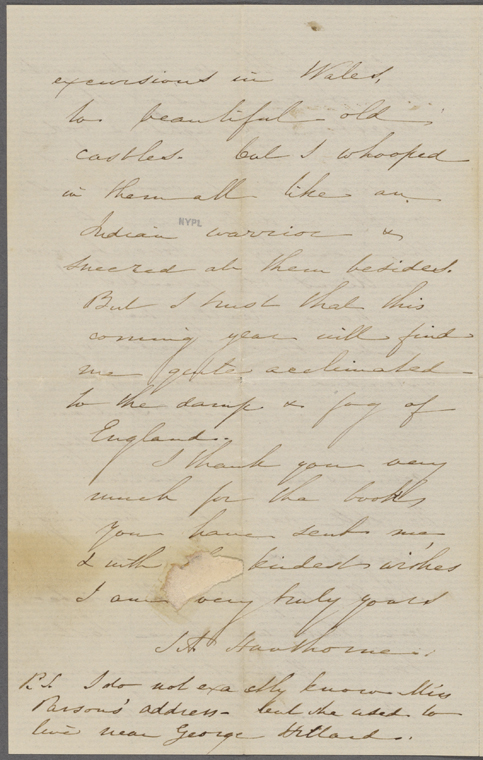 excursions in Wales,
to beautiful old
castles. but I whooped
in them all like an
Indian warrior &
NYPL
sneered at them besides.
But I trust that this
coming year will find
me quite acclimated
to the damp & fog of
England.
I thank you very
much for the books
you have sent me
& with kindest wishes
I am very truly yours
SA Hawthorne.
P.S. I do not exactly know Miss
Parsons' address - but she used to
live near George Hillard.